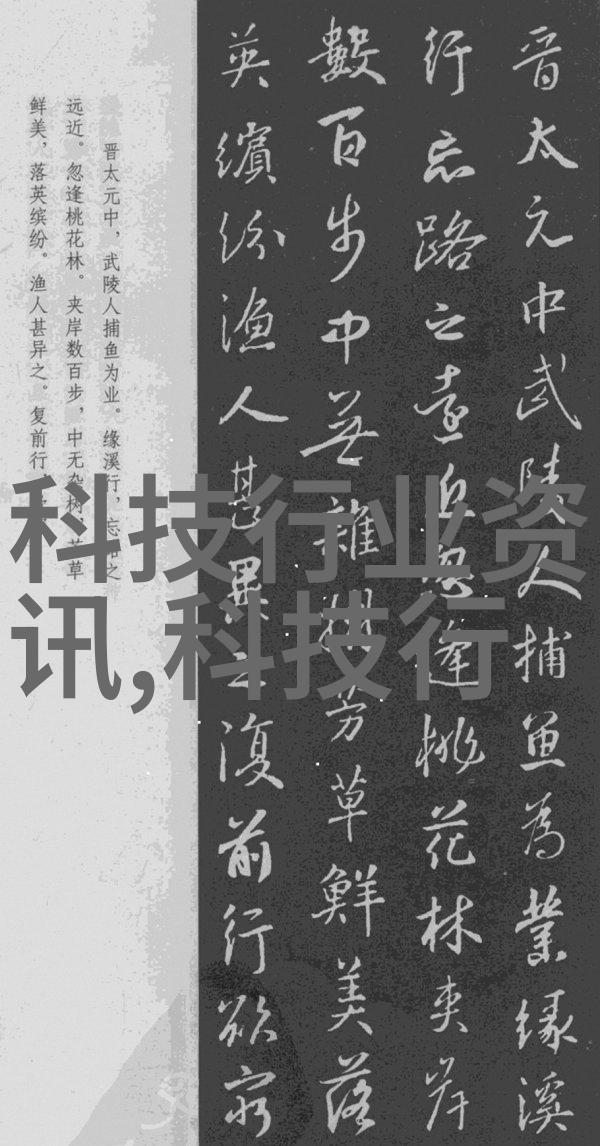 晋太元中武陵人捕鱼为業缘溪
行忘路之遠近忽逢桃花林夹岸
數百步中無雜樹芳草鮮美落
英繽纷渔人甚異之復前行欲穷
晋太元中，武陵人捕鱼为业。缘溪行，忘路之
远近。忽逢桃花林。夹岸数百步，中无杂树，芳草
鲜美，落英缤纷。渔人甚异之。复前行，
科技行业资
讯,科技行